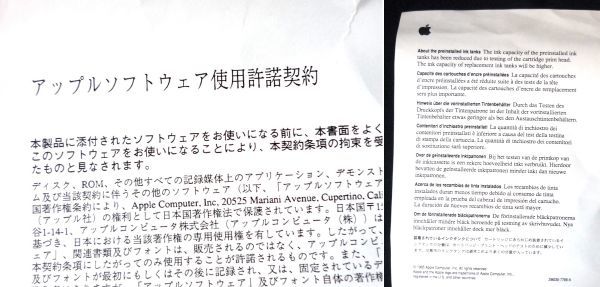 アップルソフトウェア使用許諾契約
本製品に添付されたソフトウェアをお使いになる前に、本書面をよく
このソフトウェアをお使いになることにより、本契約条項の拘束を受
たものと見なされます。
ディスク、ROM、その他すべての記録媒体上のアプリケーション、デモンスト
ム及び当該契約に伴うその他のソフトウェア（以下、「アップルソフトウェア
国著作権条約により、Apple Computer, Inc. 20525 Mariani Avenue, Cupertino, Cali
(アップル社) の権利として日本国著作権法で保護されています。日本国〒1
谷1-14-1、アップルコンピュータ株式会社（アップルコンピュータ（株））は
基づき、日本における当該著作権の専用使用権を有しています。したがって、
ェア」、関連書類及びフォントは、販売されるのではなく、アップルコンピ
本契約条項にしたがってのみ使用することが許諾されるものです。また、「
及びフォントが最初にもしくはその後に記録され、又は、固定されているデ
ますが、「アップルソフトウェア」及びフォント自体の著作権
About the preinstalled ink tanks The ink capacity of the preinstalled ink
tanks has been reduced due to testing of the cartridge print head.
The ink capacity of replacement ink tanks will be higher.
Capacité des cartouches d'encre préinstallées La capacité des cartouches
d'encre préinstallées a été réduite suite à des tests de la tête
d'impression. La capacité des cartouches d'encre de remplacement
sera plus importante.
Hinweis über die vorinstallierten Tintenbehälter Durch das Testen des
Druckkopfes der Tintenpatrone ist der Inhalt der vorinstallierten
Tintenbehälter etwas geringer als bei den Austauschtintenbehältern.
Contenitori d'inchiostro preinstallati La quantità di inchiostro dei
contenitori preinstallati è inferiore a causa del test della testina
di stampa della cartuccia. La quantità di inchiostro dei contenitori
di sostituzione sarà superiore.
Over de geïnstalleerde inktpatronen Bij het testen van de printkop van
de inktcassette is een zekere hoeveelheid inkt verbruikt. Hierdoor
bevatten de geïnstalleerde inktpatronen minder inkt dan nieuwe
inktpatronen.
Acerca de los recambios de tinta instalados Los recambios de tinta
instalados duran menos tiempo debido al consumo de tinta
empleada en la prueba del cabezal de impresión del cartucho.
La duración de nuevos recambios de tinta será mayor.
Om de förinstallerade bläckpatronerna De förinstallerade bläckpatronerna
innehåller mindre bläck beroende på testning av skrivhuvudet. Nya
bläckpatroner innehåller dock mer bläck.